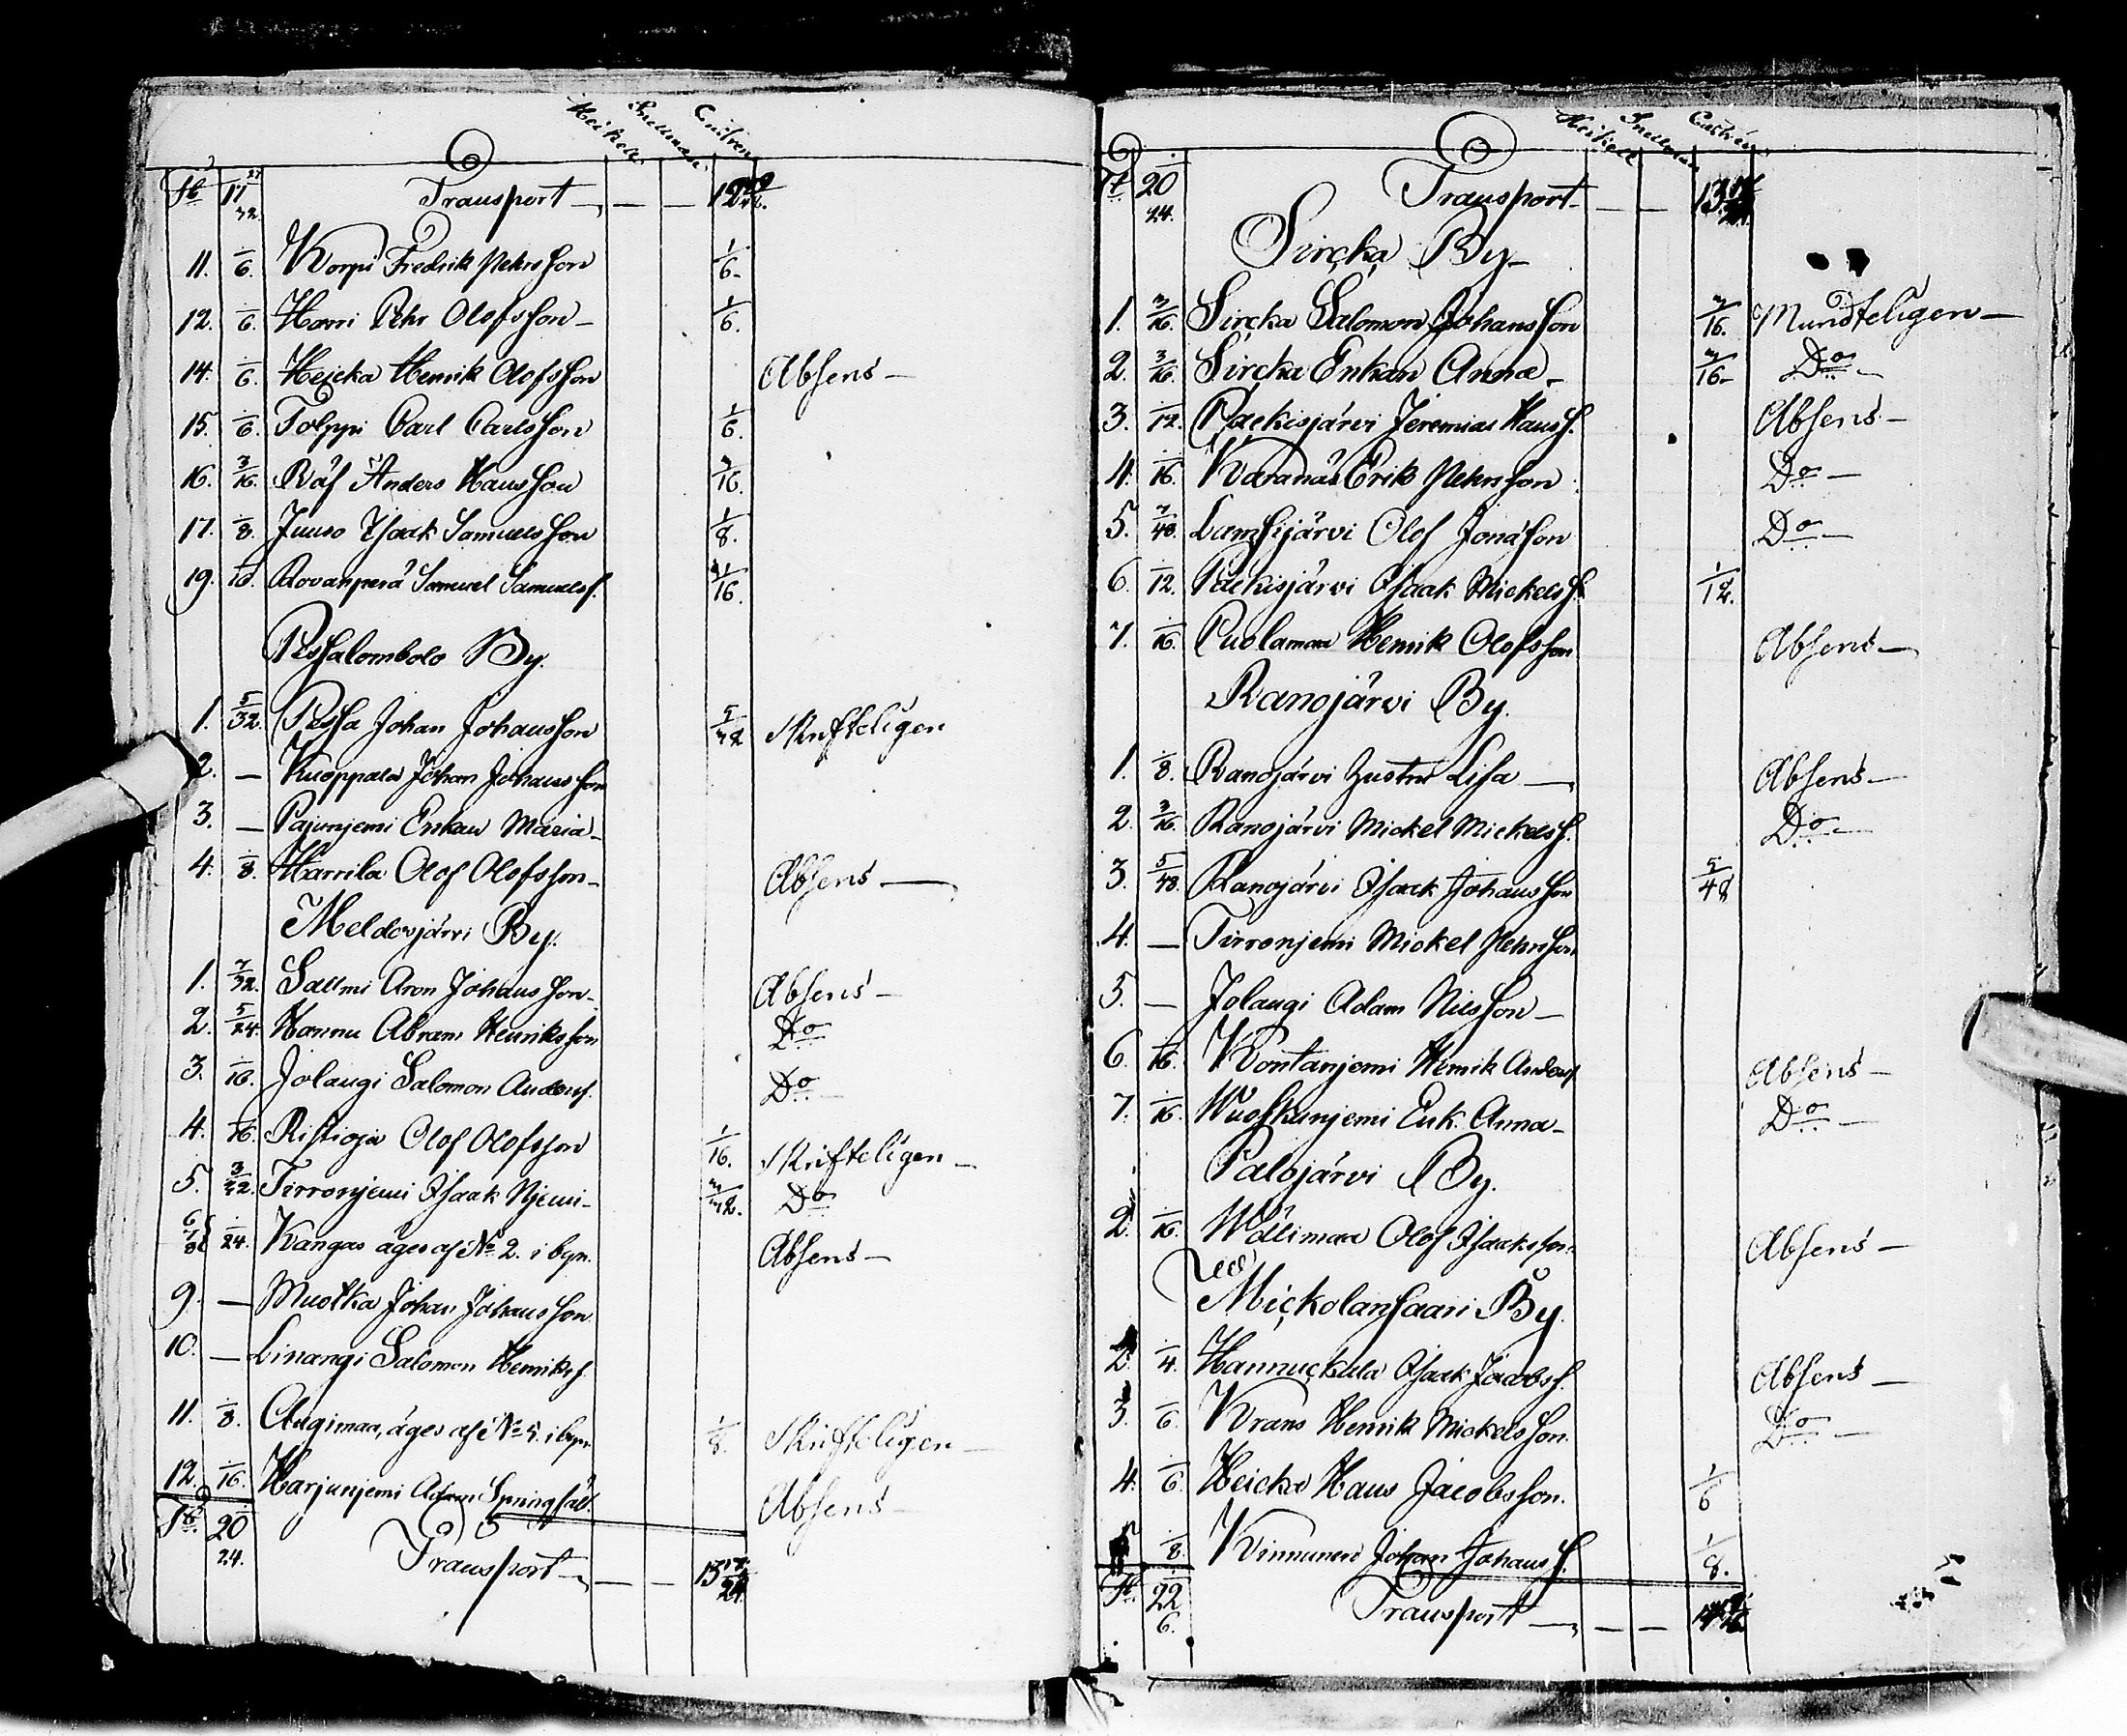 Heikell Snellman Castren
St. 17 27/32 Transport — — — 12
11. 1/6. Korpi Fredrik Pehrsson 1/6.
12. 1/6. Harri Pehr Olofsson — 1/6.
14. 1/6. Heicka Henrik Olofsson Absens —
15. 1/6. Tolppi Carl Carlsson 1/6.
16. 3/16. Räf Anders Hansson 3/16.
17. 1/8. Juuso Isaak Samuelsson 1/8.
19. 1/16. Rovanperä Samuel Samuelss. 1/16.
Pessalombolo By.
1. 5/32. Pessa Johan Johansson 5/32 Skrifteligen
2. — Kuoppala Johan Johansson
3. — Pajunjemi Enkan Maria —
4. 1/8. Harrila Olof Olofsson — Absens —
Meldovjärvi By.
1. 7/32. Sallmi Aron Johansson — Absens —
2. 5/24. Hannu Abram Henriksson Do
3. 1/16. Jolangi Salomon Anderss. Do —
4. 1/16. Ristioja Olof Olofsson 1/16. Skrifteligen —
5. 3/32. Tirronjemi Isaak Njemi — 3/32. Do
6 7 8 1/24. Kangas äges af No 2. i byn. Absens —
9. — Muotka Johan Johansson
10. — Linangi Salomon Henrikss.
11. 1/8. Angimaa, äges af No 5. i byn 1/8. Skrifteligen —
12. 1/16. Harjunjemi Adam Springfält. Absens —
St. 20 1/24. Transport — — — 13 17/24
Heikell Snellman Castrén
St. 20 1/24. Transport — — — 13
Sircka By —
1. 3/16. Sircka Salomon Johansson 3/16. Mundteligen —
2. 3/16. Sircka Enkan Anna — 3/16. Do —
3. 1/12. Packisjärvi Jeremias Hanss. Absens —
4. 1/16. Karanas Erik Pehrsson Do —
5. 7/48. Lamsijärvi Olof Jonasson Do —
6. 1/12. Packisjärvi Isaak Mickelss. 1/12.
7. 1/16. Puolamaa Henrik Olofsson Absens —
Ranojärvi By.
1. 1/8. Ranojärvi Hustru Lisa — Absens —
2. 3/16. Ranojärvi Mickel Mickelss. Do —
3. 5/48. Ranojärvi Isaak Johansson 5/48
4. — Tirronjemi Mickel Pehrsson
5. — Jolangi Adam Nilsson —
6. 1/16. Kontanjemi Henrik Anderss Absens —
7. 1/16. Wuoskunjemi Enk. Anna — Do —
Palojärvi By.
2. 1/16. Wälimaa Olof Isaksson. Absens —
Mickolansaari By.
2. 1/4. Hannuckala Isaak Jacobss. Absens —
3. 1/6. Krans Henrik Mickelsson. Do —
4. 1/6. Heicka Hans Jacobsson. 1/6
5 1/8. Kinnunen Johan Johanss. 1/8.
St. 22 1/6. Transport — — —